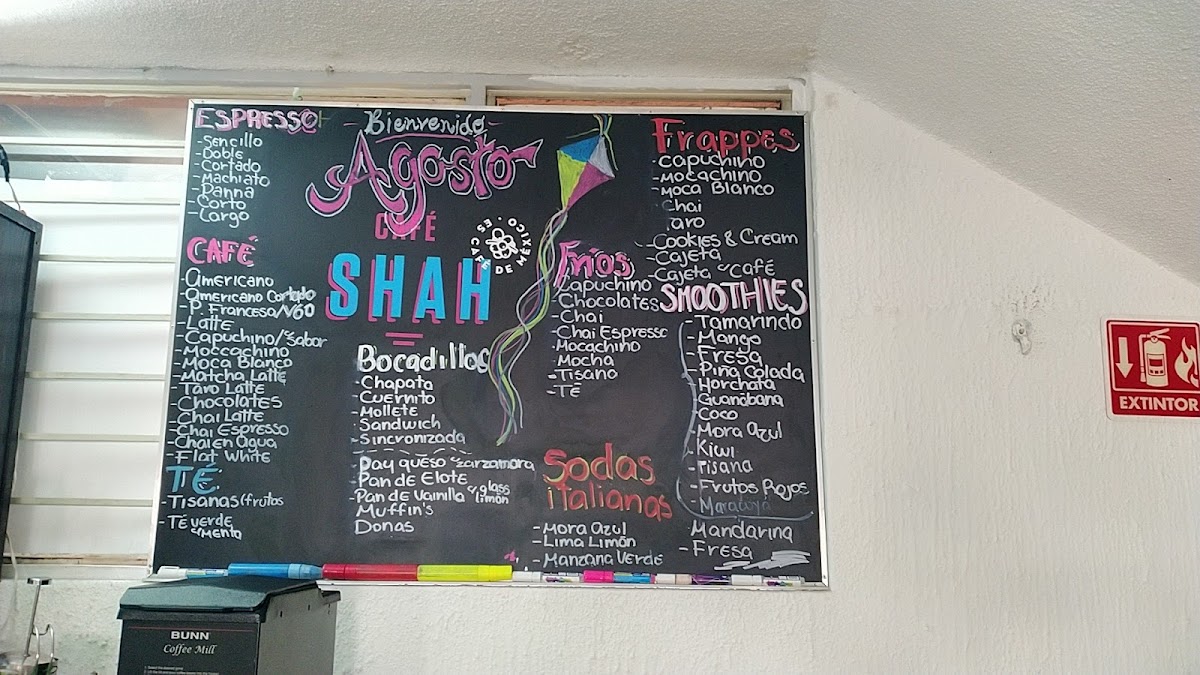 ESPRESSO
-Sencillo
-Doble
-Cortado
-Machiato
-Panna
-Corto
-Cargo
CAFÉ
-Americano
-Americano Cortado
-P. Francesa/V60
-Latte
-Capuchino/Sabor
-Moccachino
-Moca Blanco
-Matcha Latte
-Taro Latte
-Chocolates
-Chai Latte
-Chai Espresso
-Chai en Agua
-Flat White
TÉ
-Tisanas (frutos
-Té verde
c/Menta
-Bienvenido-
Agosto
CAFÉ
SHAH
ES CAFÉ DE MÉXICO
Bocadillos
-Chapata
-Cuernito
-Mollete
-Sandwich
-Sincronizada
-Pay queso c/zarzamora
-Pan de Elote
-Pan de Vainilla c/glass limón
Muffin's
Donas
Fríos
Capuchino
-Chocolates
-Chai
-Chai Espresso
-Mocachino
-Mocha
-Tisana
-Té
Sodas
italianas
-Mora Azul
-Lima Limón
-Manzana Verde
Frappes
-Capuchino
-Mocachino
-Moca Blanco
Chai
Taro
-Cookies & Cream
-Cajeta
-Cajeta c/café
SMOOTHIES
-Tamarindo
-Mango
-Fresa
-Piña Colada
-Horchata
-Guanábana
-Coco
-Mora Azul
-Kiwi
-Tisana
-Frutos Rojos
-Maracuyá
Mandarina
-Fresa
EXTINTOR
BUNN
Coffee Mill